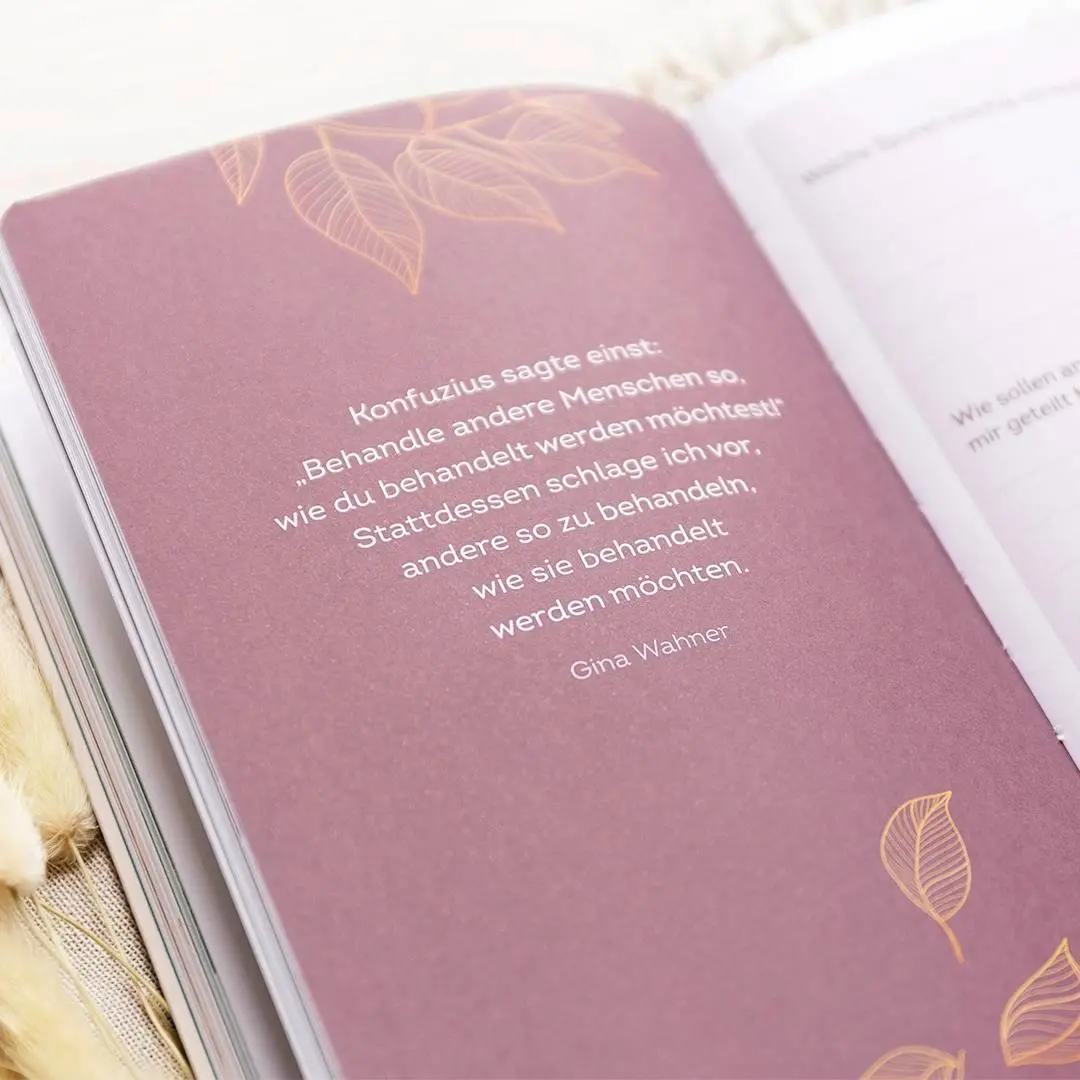 Konfuzius sagte einst:
„Behandle andere Menschen so,
wie du behandelt werden möchtest!“
Stattdessen schlage ich vor,
andere so zu behandeln,
wie sie behandelt
werden möchten.
Gina Wahner
Wie sollen
mir geteilt